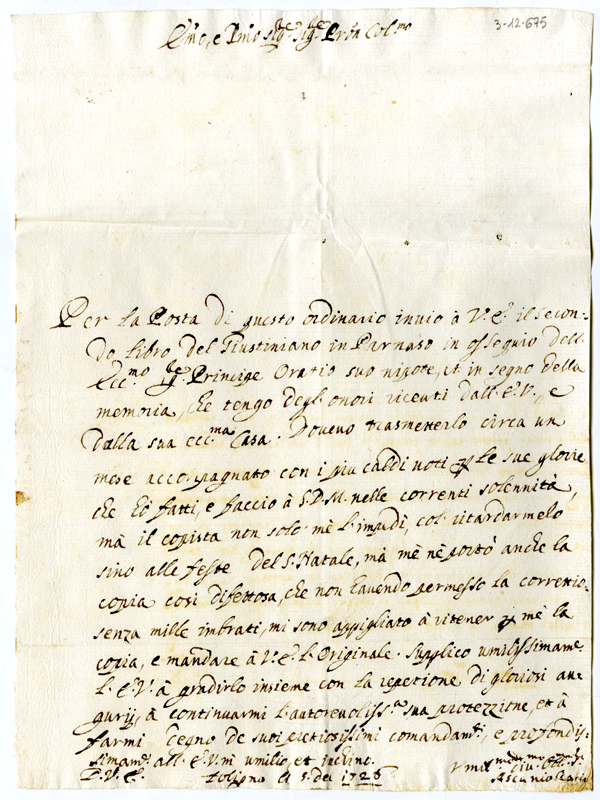 3-12-675
Em.o, e P.mo Sig.re Sig.re P.rōn Col.mo
Per la Posta di questo ordinario invio à V.E. il secon-
do libro del Giustiniano in Parnaso in osseguio dell
Ecc.mo Sig.re Principe Oratio suo nipote, et in segno della
memoria, che tengo degl'onori riceuti dall'E.V., e
dalla sua ecc.ma Casa. Dovevo trasmetterlo circa un
mese accompagnato con i più caldi voti p le sue glorie
che hò fatti, e faccio à S.D.M. nelle correnti solennità,
mà il copista non solo mè l'impedì, col ritardarmelo
sino alle feste del S. Natale, mà mè nè portò anche la
copia così difettosa, che non havendo permesso la correttio-
senza mille imbrati, mi sono appigliato à ritener p mè la
copia, e mandare à V.E. l'Originale. Supplico umilissimame.
l'E.V. à gradirlo insieme con la repetione di gloriosi au-
gurij, à continuarmi l'autorevoliss.a sua protezzione, et à
farmi degno de suoi pretiosissimi comandam.ti, e profondis-
simam.te all'E.V. mi umilio, et inchino.
D.V.E. Foligno li 5. del 1726
Ascanio